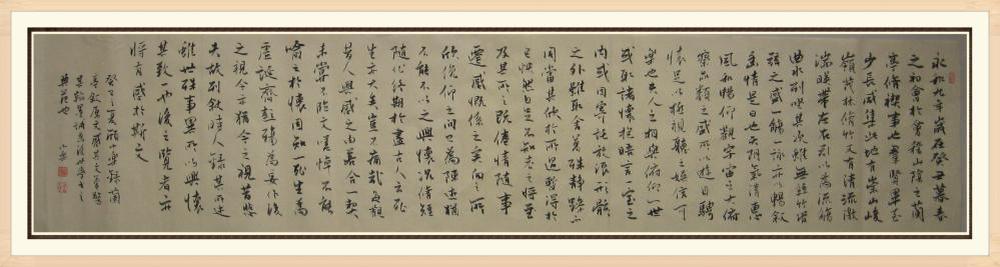 永和九年歲在癸丑暮春
之初會於會稽山陰之蘭
亭脩禊事也羣賢畢至
少長咸集此地有崇山峻
嶺茂林脩竹又有清流激
湍暎帶左右引以為流觴
曲水列坐其次雖無絲竹管
弦之盛一觴一詠亦足以暢敘
幽情是日也天朗氣清惠
風和暢仰觀宇宙之大俯
察品類之盛所以遊目騁
懷足以極視聽之娛信可
樂也夫人之相與俯仰一世
或取諸懷抱晤言一室之
內或因寄所託放浪形骸
之外雖取舍萬殊靜躁不
同當其欣於所遇暫得於
己快然自足不知老之將至
及其所之既倦情隨事
遷感慨係之矣向之所
欣俛仰之間以為陳迹猶
不能不以之興懷況脩短
隨化終期於盡古人云死
生亦大矣豈不痛哉每覽
昔人興感之由若合一契
未嘗不臨文嗟悼不能
喻之於懷固知一死生為
虛誕齊彭殤為妄作後
之視今亦猶今之視昔悲
夫故列敘時人錄其所述
雖世殊事異所以興懷
其致一也後之覽者亦
將有感於斯文